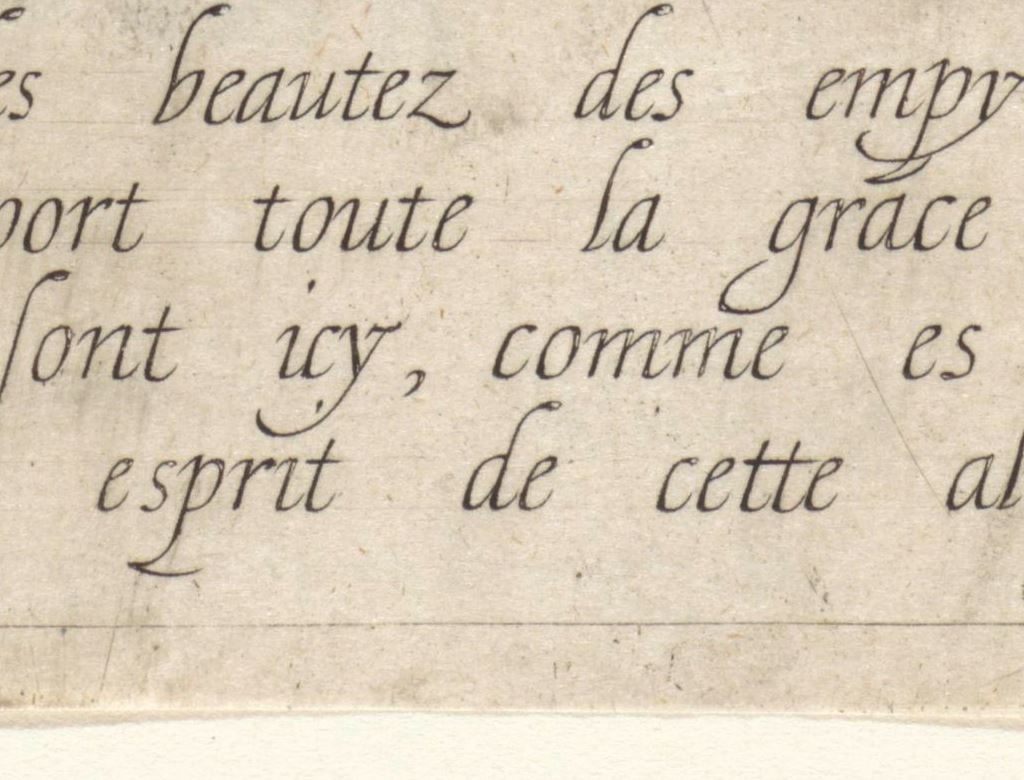 es beautez des empy
port toute la grace
ſont icy, comme es
esprit de cette al